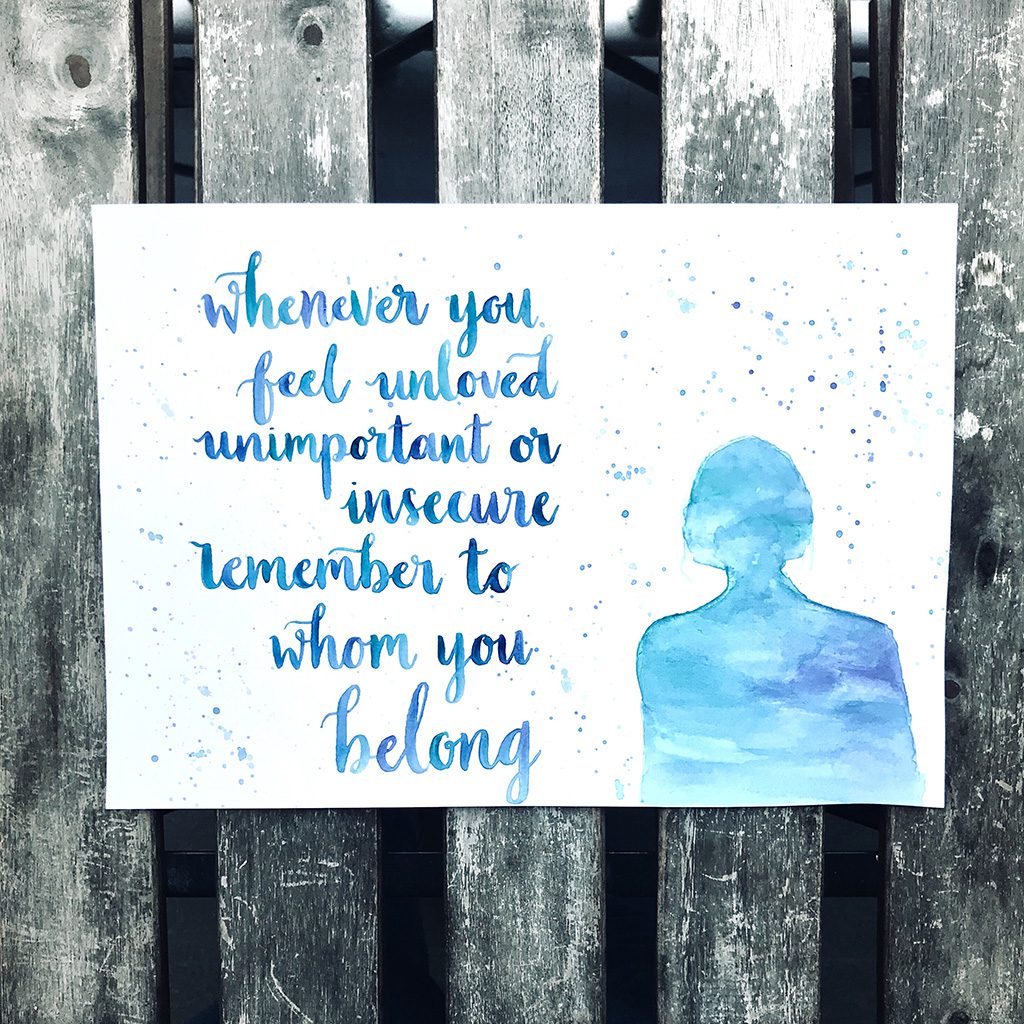 whenever you
feel unloved
unimportant or
insecure
remember to
whom you
belong